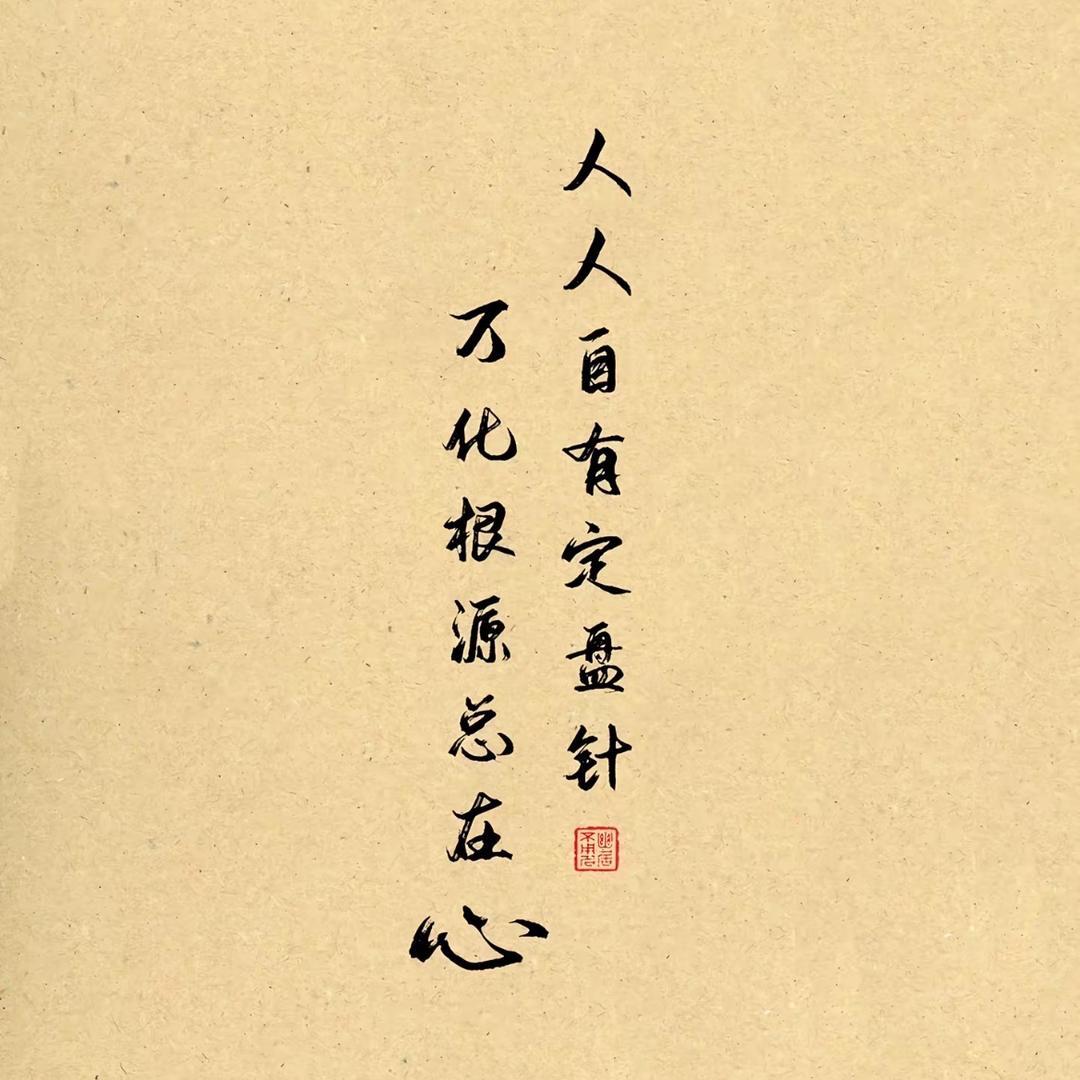 人人自有定盘针
万化根源总在心